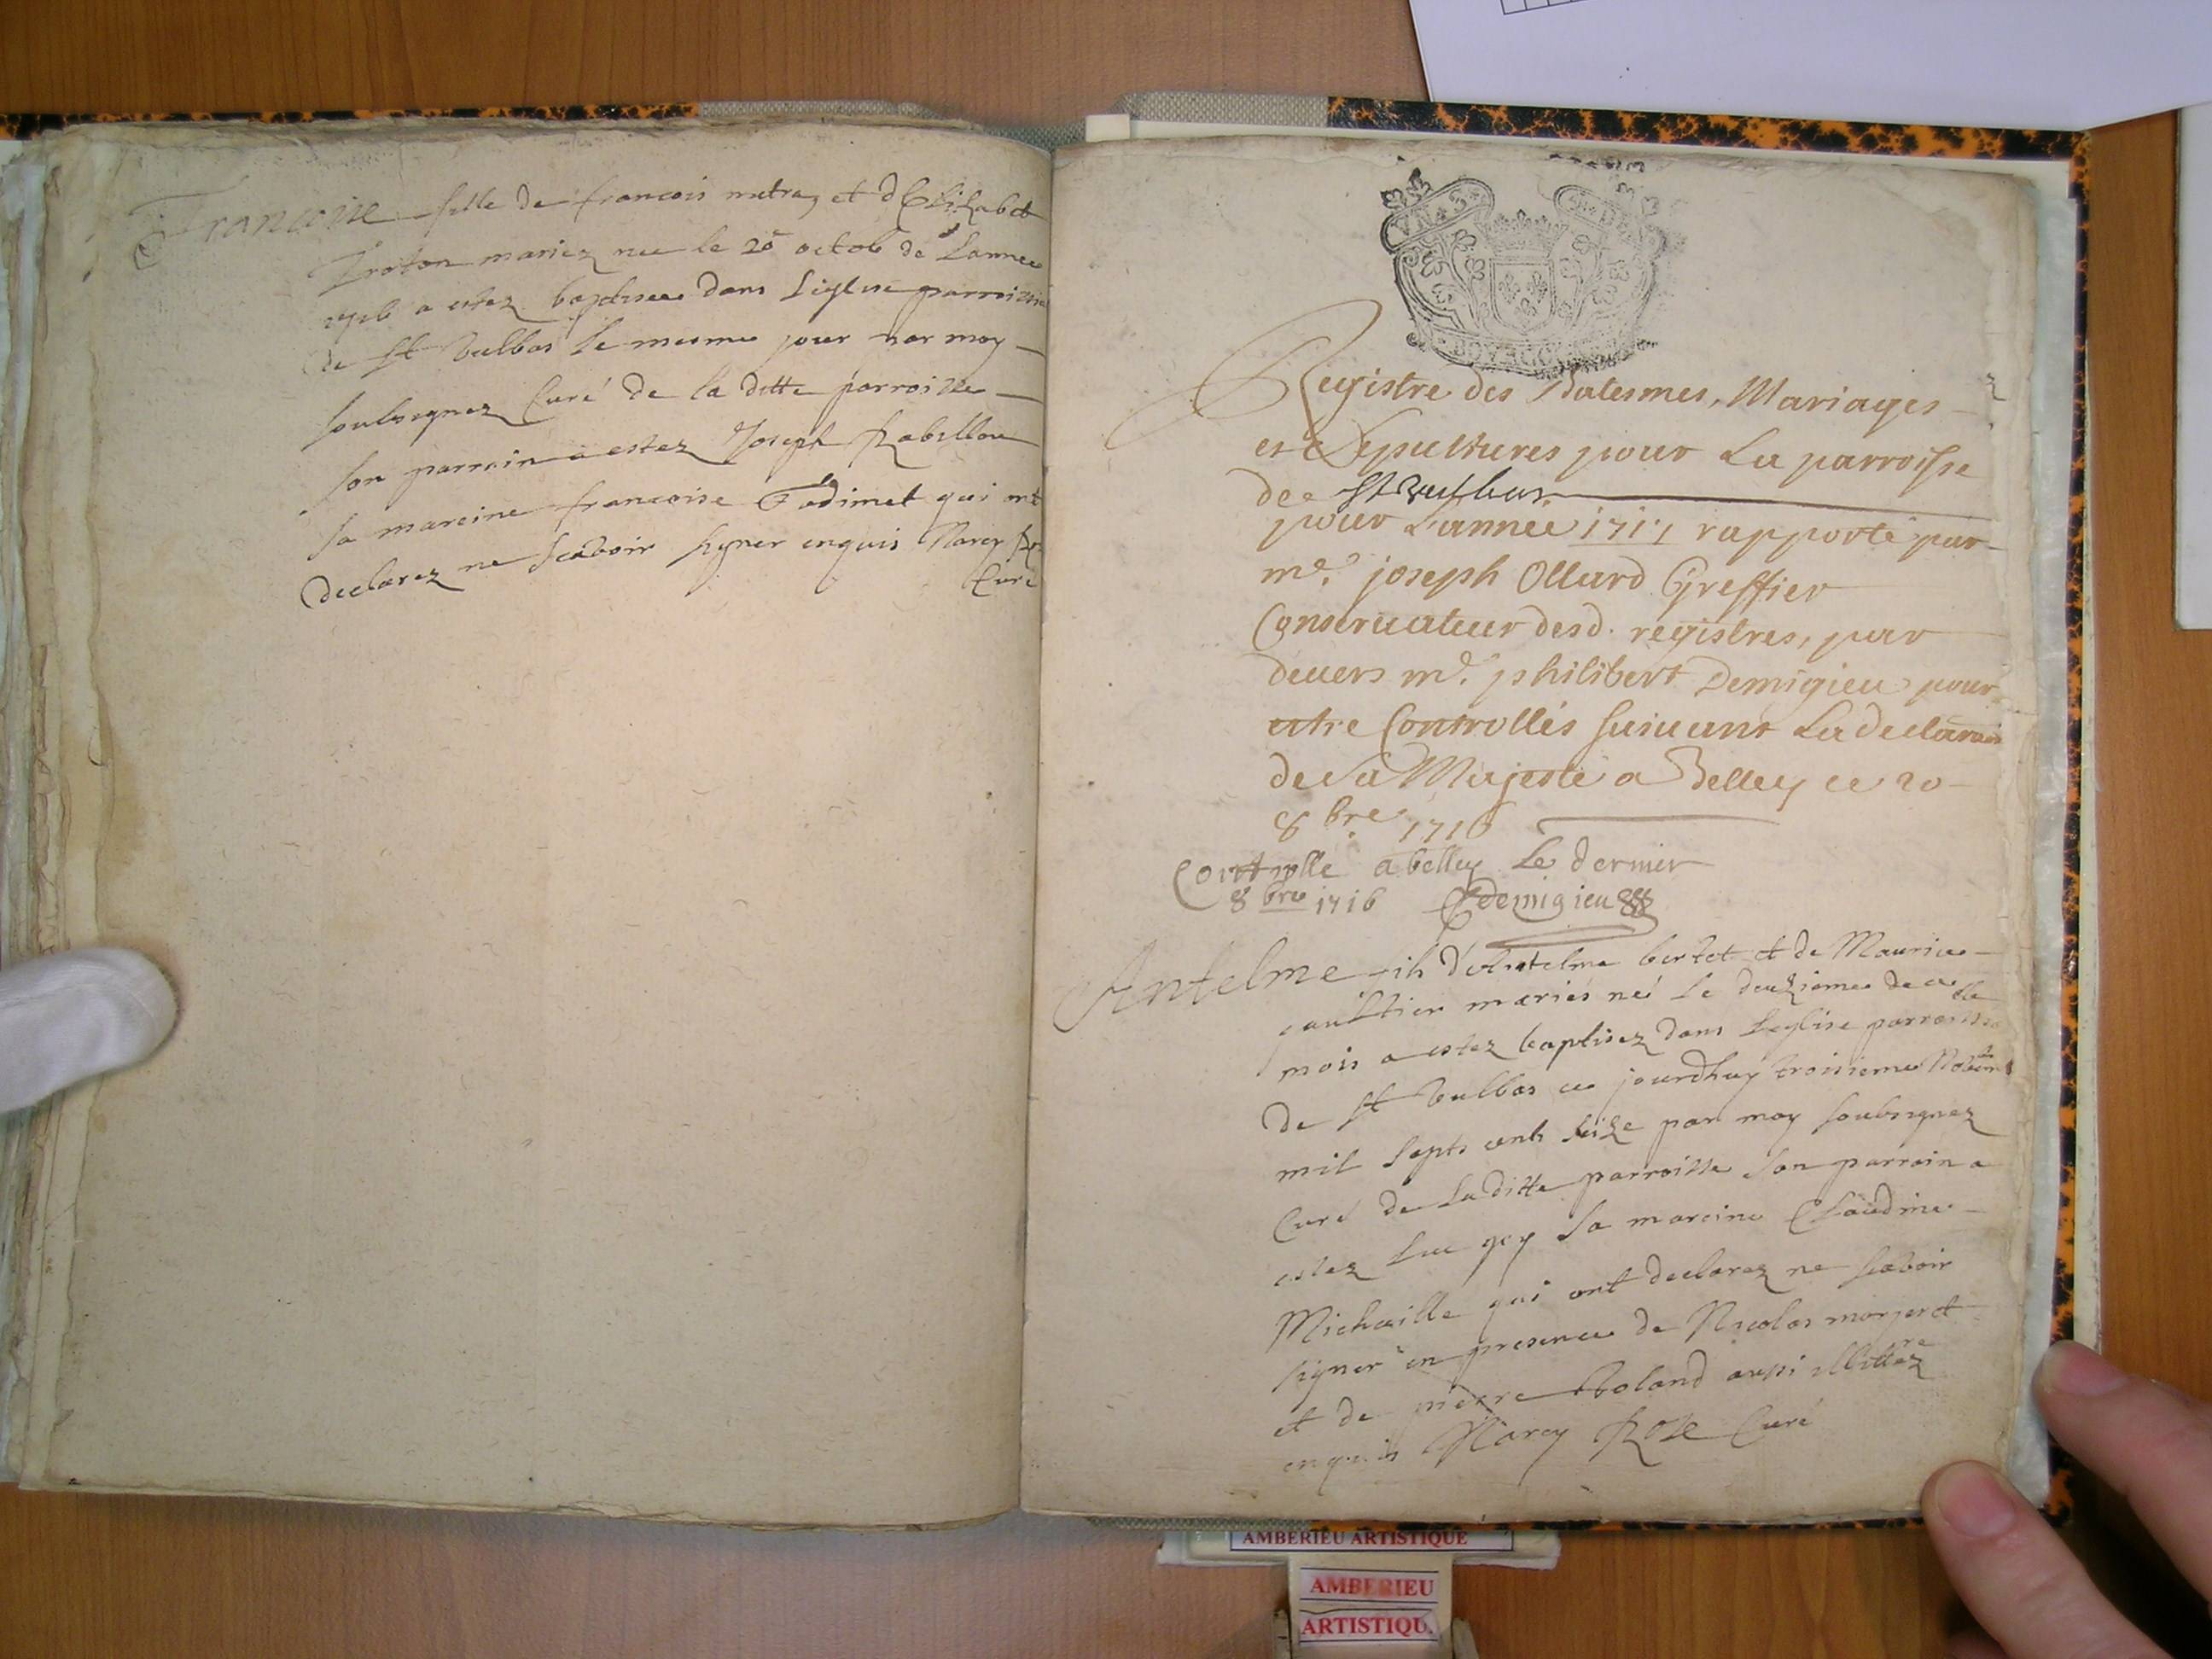 Francoise fille de francois metraz et d'Elizabet
Troton mariez nee le 20 octob de Lannee
1716 a estez baptisee dans Leglise parroissia
de St Vulbas Le mesme jour par moy
soubsignez Curé de la ditte parroisse
son parrain a estez Joseph Rabillon
sa mareine francoise qui ont
declarez ne scavoir signer enquis Narcy
Curé
Registre des Batesmes, Mariages
et Sepultures pour La parroisse
de St Vulbas
pour L'année 1717 rapporté par
me. joseph Ollard Greffier
Conseruateur desd. registres, par
deuers me. philibert Demigieu pour
estre Controllés suiuant La declaraon
de sa Majesté a Belley ce 20
8bre 1716
Controlle a belley Le dernier
8bre 1716 Demigieu
Antelme fils d'Antelme bertet et de Maurice
gaulttier mariés né Le deuzieme de ce
mois a estez baptisez dans Leglise parroissialle
De St Vulbas ce jourdhuy troisieme Novemb
mil sept cents seize par moy soubsignez
Curé de La ditte parroisse son parrain a
estez Luc gey sa mareine Claudine
Michaille qui ont declarez ne scavoir
signer en presence de Nicolas morgeret
et de pierre Roland aussi illittrez
enquis Narcy Roze Curé
AMBERIEU ARTISTIQUE
AMBERIEU
ARTISTIQU